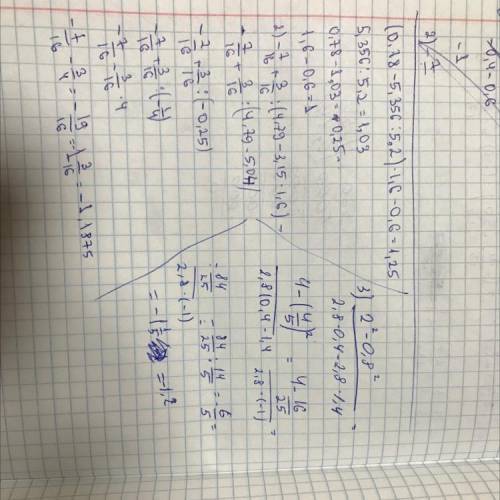 -0,4-0,6
-1
2) -7
(0,78-5,356:5,2)·1,6-0,6=4,25
5,356:5,2=1,03
0,78-1,03=-0,25
1,6-0,6=1
2) -7/16+3/16:(4,79-3,15·1,6)-
-7/16+3/16:(4,79-5,04)
-7/16+3/16:(-0,25)
-7/16+3/16:(-1/4)
-7/16-3/16·4
-7/16-3/4=-19/16=1 3/16=-1,1875
3) 2²-0,8²
2,8·0,4-2,8·1,4 =
4-(4/5)² = 4-16/25 =
2,8(0,4-1,4 2,8·(-1)
=84/25 = 84/25:14/5=-6/5=
2,8·(-1)
=-1 1/5 =1,2